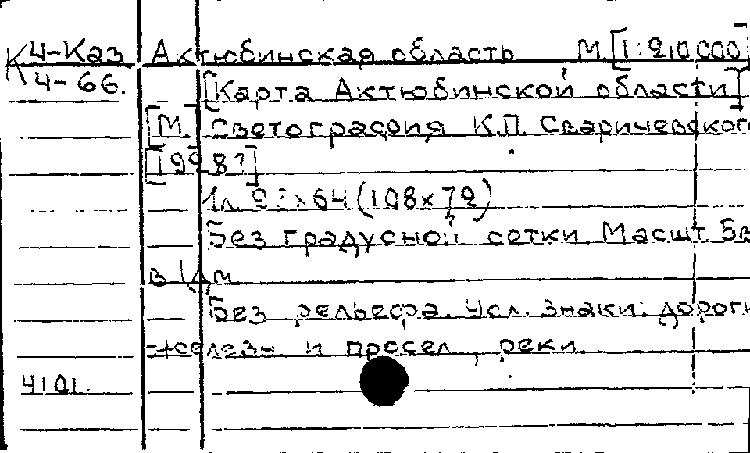 К 4-Каз Актюбинская область М.[1:210000]
4-66. [Карта Актюбинской области]
[М.] Светография К.П. Сваричевского
1л. (108х72)
Без градусной сетки. Масшт. 5в
в 1 дм
Без рельефа. Усл. знаки: дороги
железн. и просел., реки.
4101.